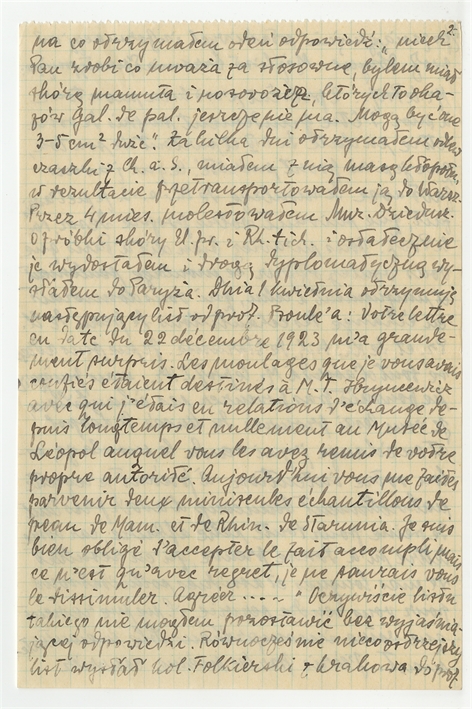 2.
na co otrzymałem odeń odpowiedź: „niech
Pan zrobi co uważa za stosowne, bylem miał
skórę mamuta i nosorożca, których to oka-
zów Gal. de pal. jeszcze nie ma. Mogą być one
3-5 cm² duże". Za kilka dni otrzymałem odlew
czaszki z Ch. a. S., miałem z nią masę kłopotu,
w rezultacie przetransportowałem ją do Warsz.
Przez 4 mies. molestowałem Muz. Dziedusz.
o próbki skóry El. pr. i Rh. tich. i ostatecznie
je wydostałem i drogą dyplomatyczną wy-
słałem do Paryża. Dnia 1 kwietnia otrzymuję
następujący list od prof. Boule'a: Votre lettre
en date du 22 décembre 1923 m'a grande-
ment surpris. Les moulages que je vous avais
confiés étaient destinés à M. J. Hryncewicz
avec qui j'étais en relations d'échange de-
puis longtemps et nullement au Musée de
Léopol auquel vous les avez remis de votre
propre autorité. Aujourd'hui vous me faites
parvenir deux minuscules échantillons de
peau de Mam. et de Rhin. de Starunia. Je suis
bien obligé d'accepter le fait accompli mais
ce n'est qu'avec regret, je ne saurais vous
le dissimuler. Agréer ..... " Oczywiście listu
takiego nie mogłem pozostawić bez wyjaśnia-
jącej odpowiedzi. Równocześnie nieco ostrzejszy
list wysłał kol. Folkierski z Krakowa do prof.